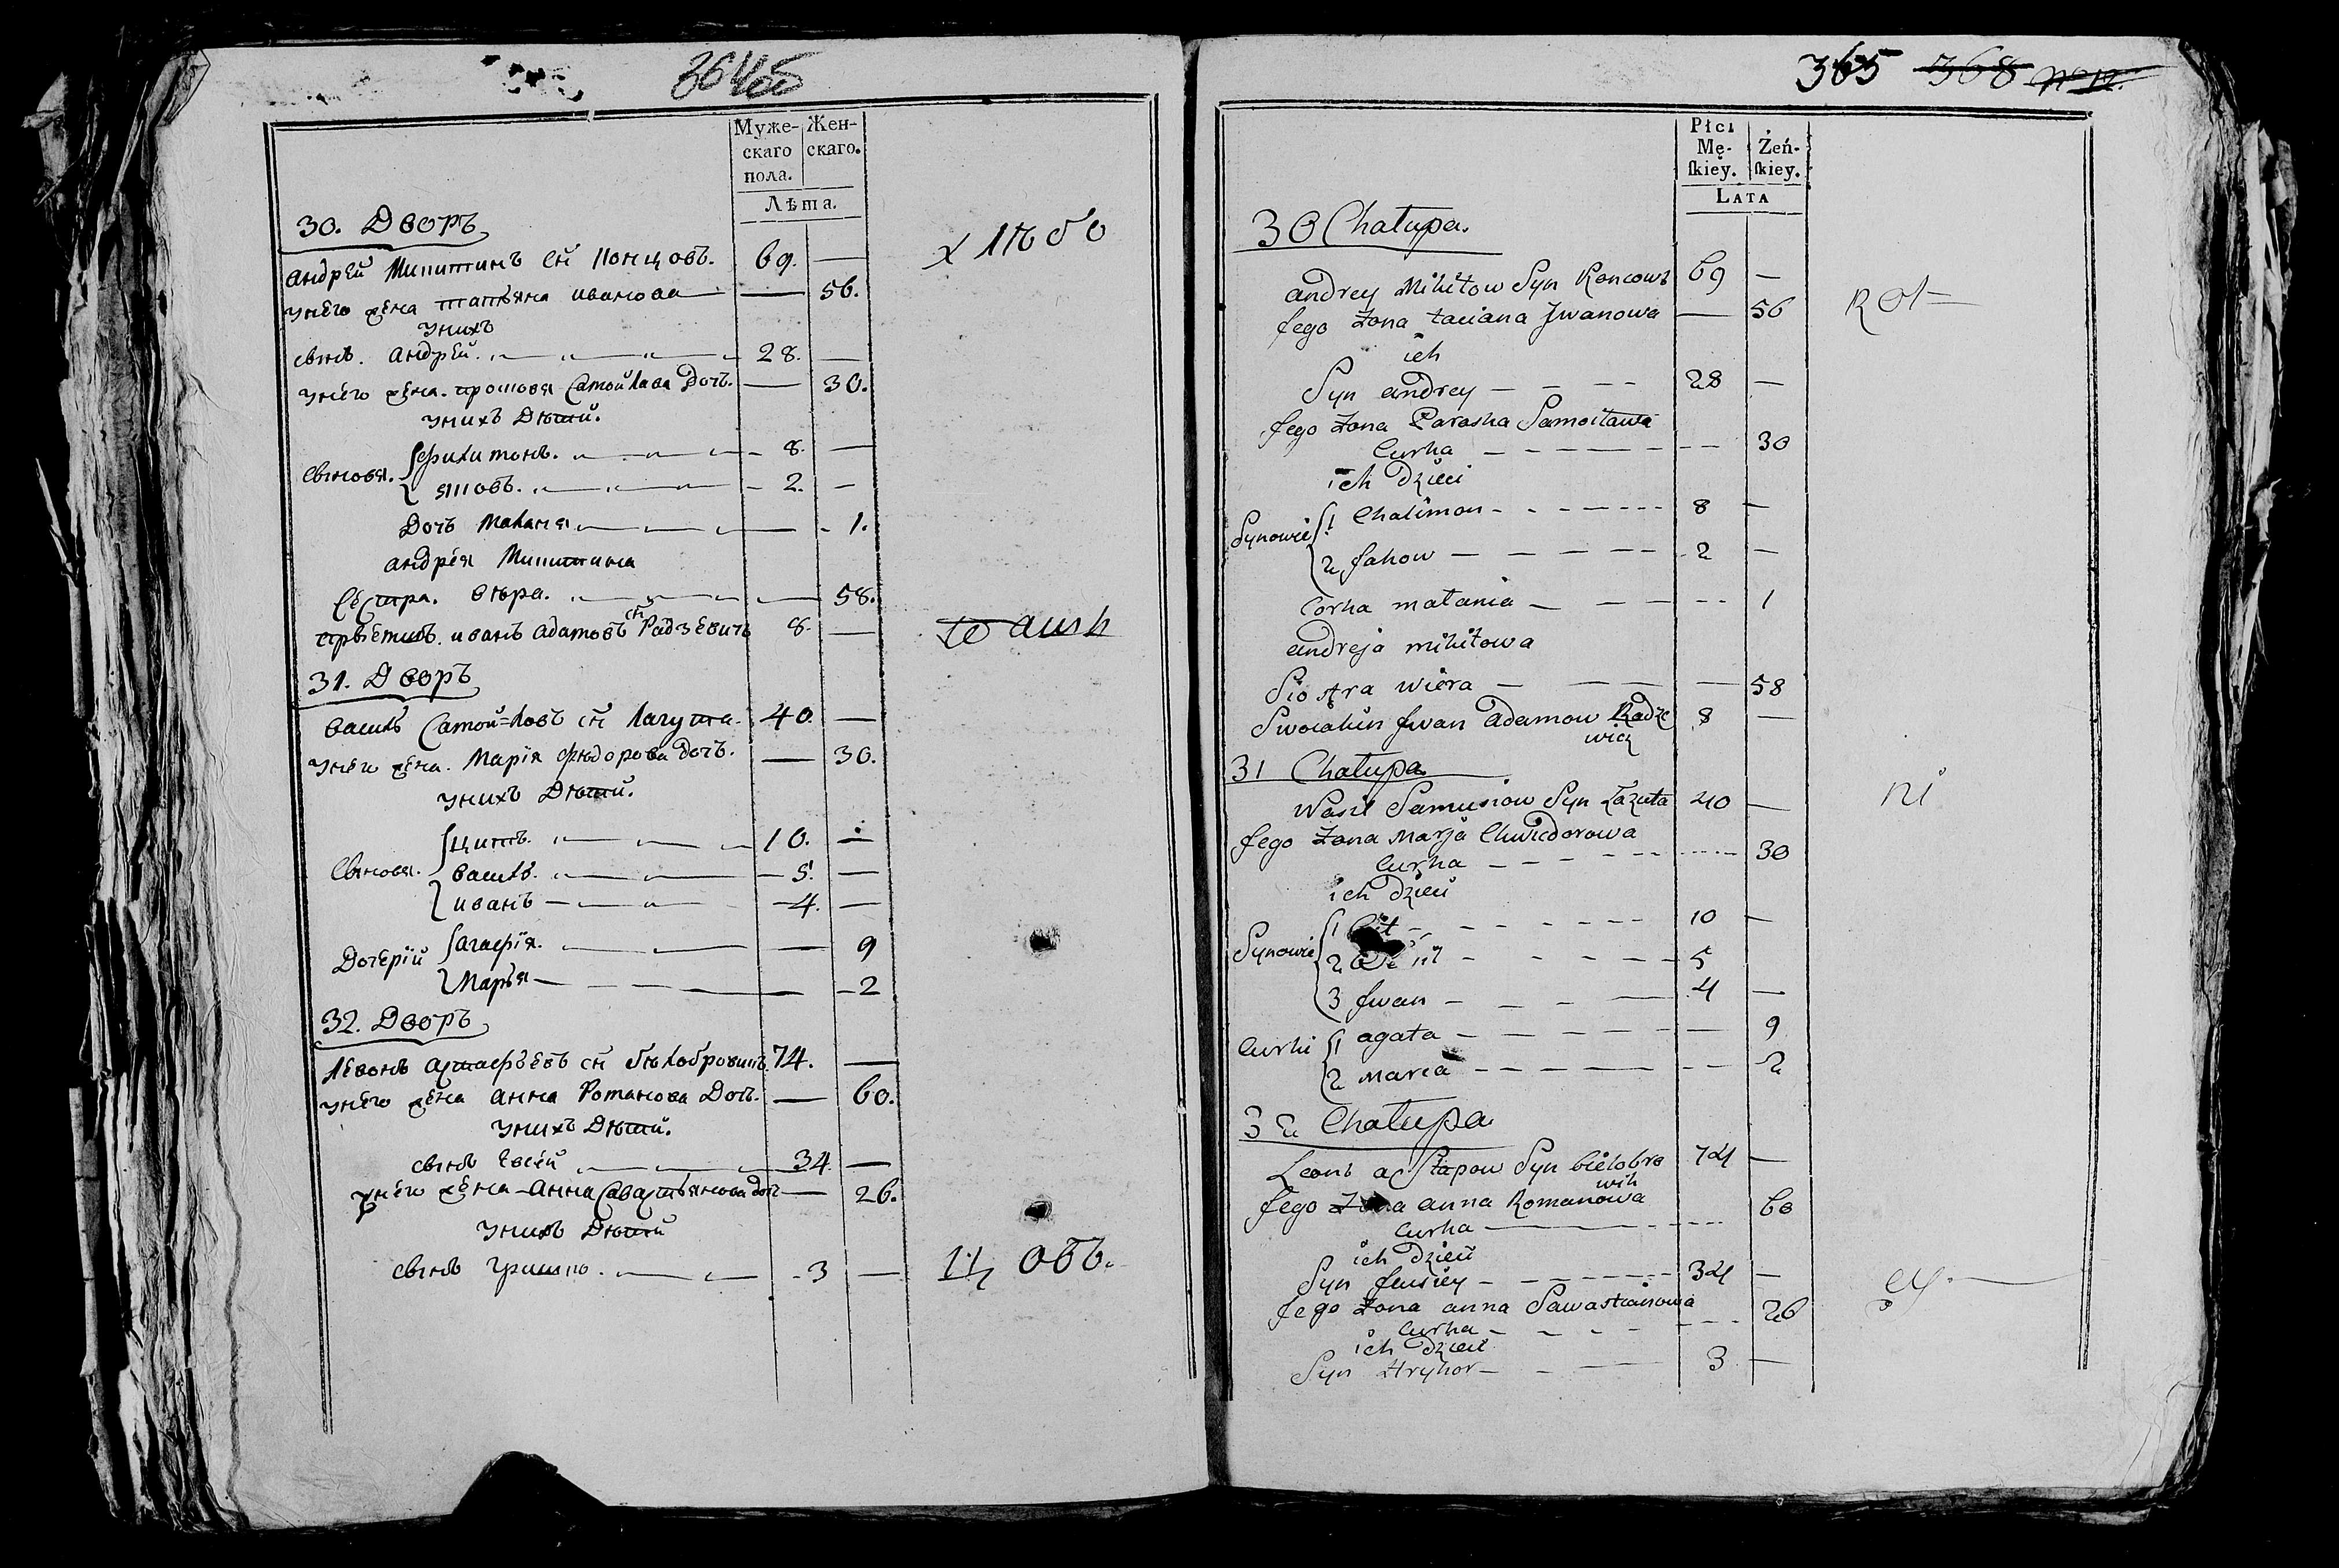 364об
Муже- Жен-
скаго скаго.
пола.
Лѣта.
30. Дворъ
Андрей Микитинъ сн Концовъ. 69. —
унего жена татьяна иванова — 56.
унихъ
сынъ. андрей. 28. —
унего жена. прошовя Самойлава дочь. — 30.
унихъ дѣтй.
сыновя. филимонъ. 8. —
яковъ. 2. —
Дочь маланя — 1.
андрея Микитина
сестра. вѣра. — 58.
иванъ адамовъ сн Радзевичъ 8. —
31. Дворъ
василь Самой=ловъ сн лагута. 40. —
унего жена. Марія фѣдорова дочь. — 30.
унихъ дѣтй.
сыновя. цитъ. 10. —
василь. 5. —
иванъ — 4. —
Дочерій агафія. — 9
Марья — 2
32. Дворъ
левонъ астафъевъ сн бѣлобровикъ. 74. —
унего жена анна Романова дочь. — 60.
унихъ дѣтй.
сынъ евсей 34. —
унего жена анна Савастьянова доч — 26.
унихъ дѣтй
сынъ гришка. 3 —
365 368 № 12.
Płci
Mę- Żeń-
ſkiey. ſkiey.
Lata
30 Chałupa.
andrey Mikitow Syn Koncowь 69 —
Jego Żona taciana Jwanowa — 56
ich
Syn andrey — 28 —
Jego żona Paraska Samoiława
Curka — 30
ich Dzieci
Synowie 1 Chalimon 8 —
2 Jakow — 2 —
Corka matania — 1
andreja mikitowa
Siostra wiera — 58
Swoiakin Jwan adamow Radze 8 —
wicz
31 Chałupa
Wasil Samusiow Syn Łazuta 40 — ni
Jego Żona Marja Chwiedorowa
Curka — 30
ich Dzieci
Synowie 1 Cit 10 —
2 5
3 Jwan — 4 —
Curki 1 agata — 9
2 Maria — 2
32 Chałupa
Leonь astapow Syn bielobro 74 —
wik
Jego Żona anna Romanowa 60
Curka —
ich Dzieci
Syn Jeusiey — 34 —
Jego żona anna Sawastianowa 26
Curka —
ich Dzieci
Syn Hryhor — 3 —